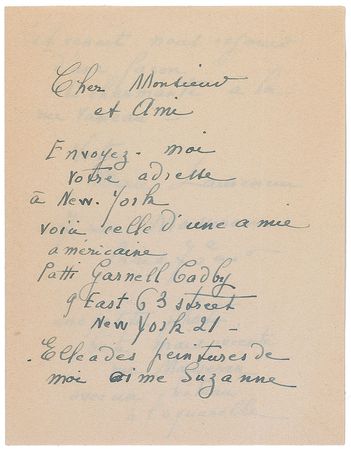 Cher Monsieur
et Ami
Envoyez-moi
votre adresse
à New-York
voici celle d'une amie
américaine
Patti Garnell Cadby
9 East 63 street
New York 21 -
. Elle a des peintures de
moi aime Suzanne